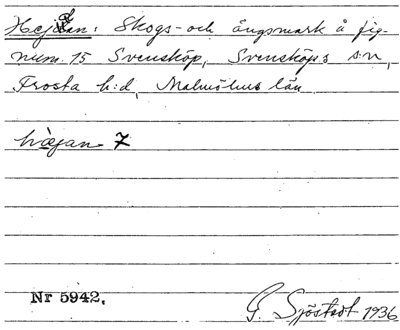 Hejdan: Skogs- och ängsmark å fig-
num. 15 Svensköp, Svensköps s:n,
Frosta h:d, Malmöhus län
hæjan 7
Nr 5942.
G. Sjöstedt 1936